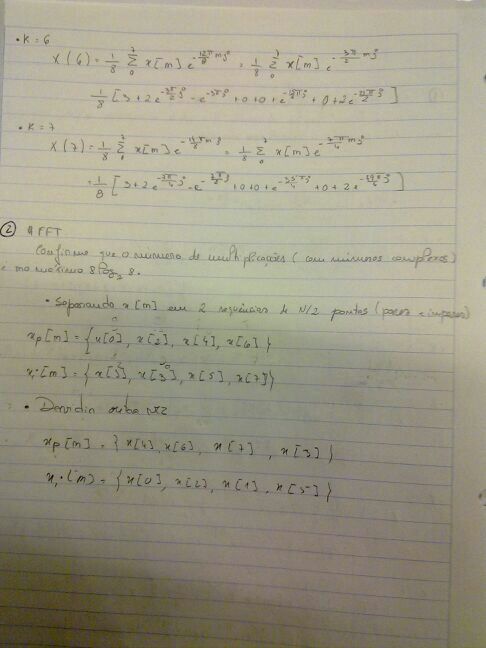 • K = 6
X(6) = 1/8 Σ₀⁷ x[m] e^(-12π/8 mj) = 1/8 Σ₀⁷ x[m] e^(-3π/2 mj)
1/8 [3 + 2e^(-3π/2 j) - e^(-3πj) + 0 + 0 + e^(-15π/2 j) + 0 + 2e^(-21π/2 j)]
• K = 7
X(7) = 1/8 Σ₀⁷ x[m] e^(-14π/8 mj) = 1/8 Σ₀⁷ x[m] e^(-7π/4 mj)
= 1/8 [3 + 2e^(-7π/4 j) - e^(-7π/2 j) + 0 + 0 + e^(-35π/4 j) + 0 + 2e^(-49π/4 j)]
② A FFT
Confirme que o número de multiplicações (com números complexos)
é no máximo 8 log₂ 8.
• Separando x[m] em 2 sequências de N/2 pontos (pares e ímpares)
xp[m] = {x[0], x[2], x[4], x[6]}
xi[m] = {x[1], x[3], x[5], x[7]}
• Dividir outra vez
xp[m] = {x[4], x[6], x[7], x[3]}
xi[m] = {x[0], x[2], x[1], x[5]}